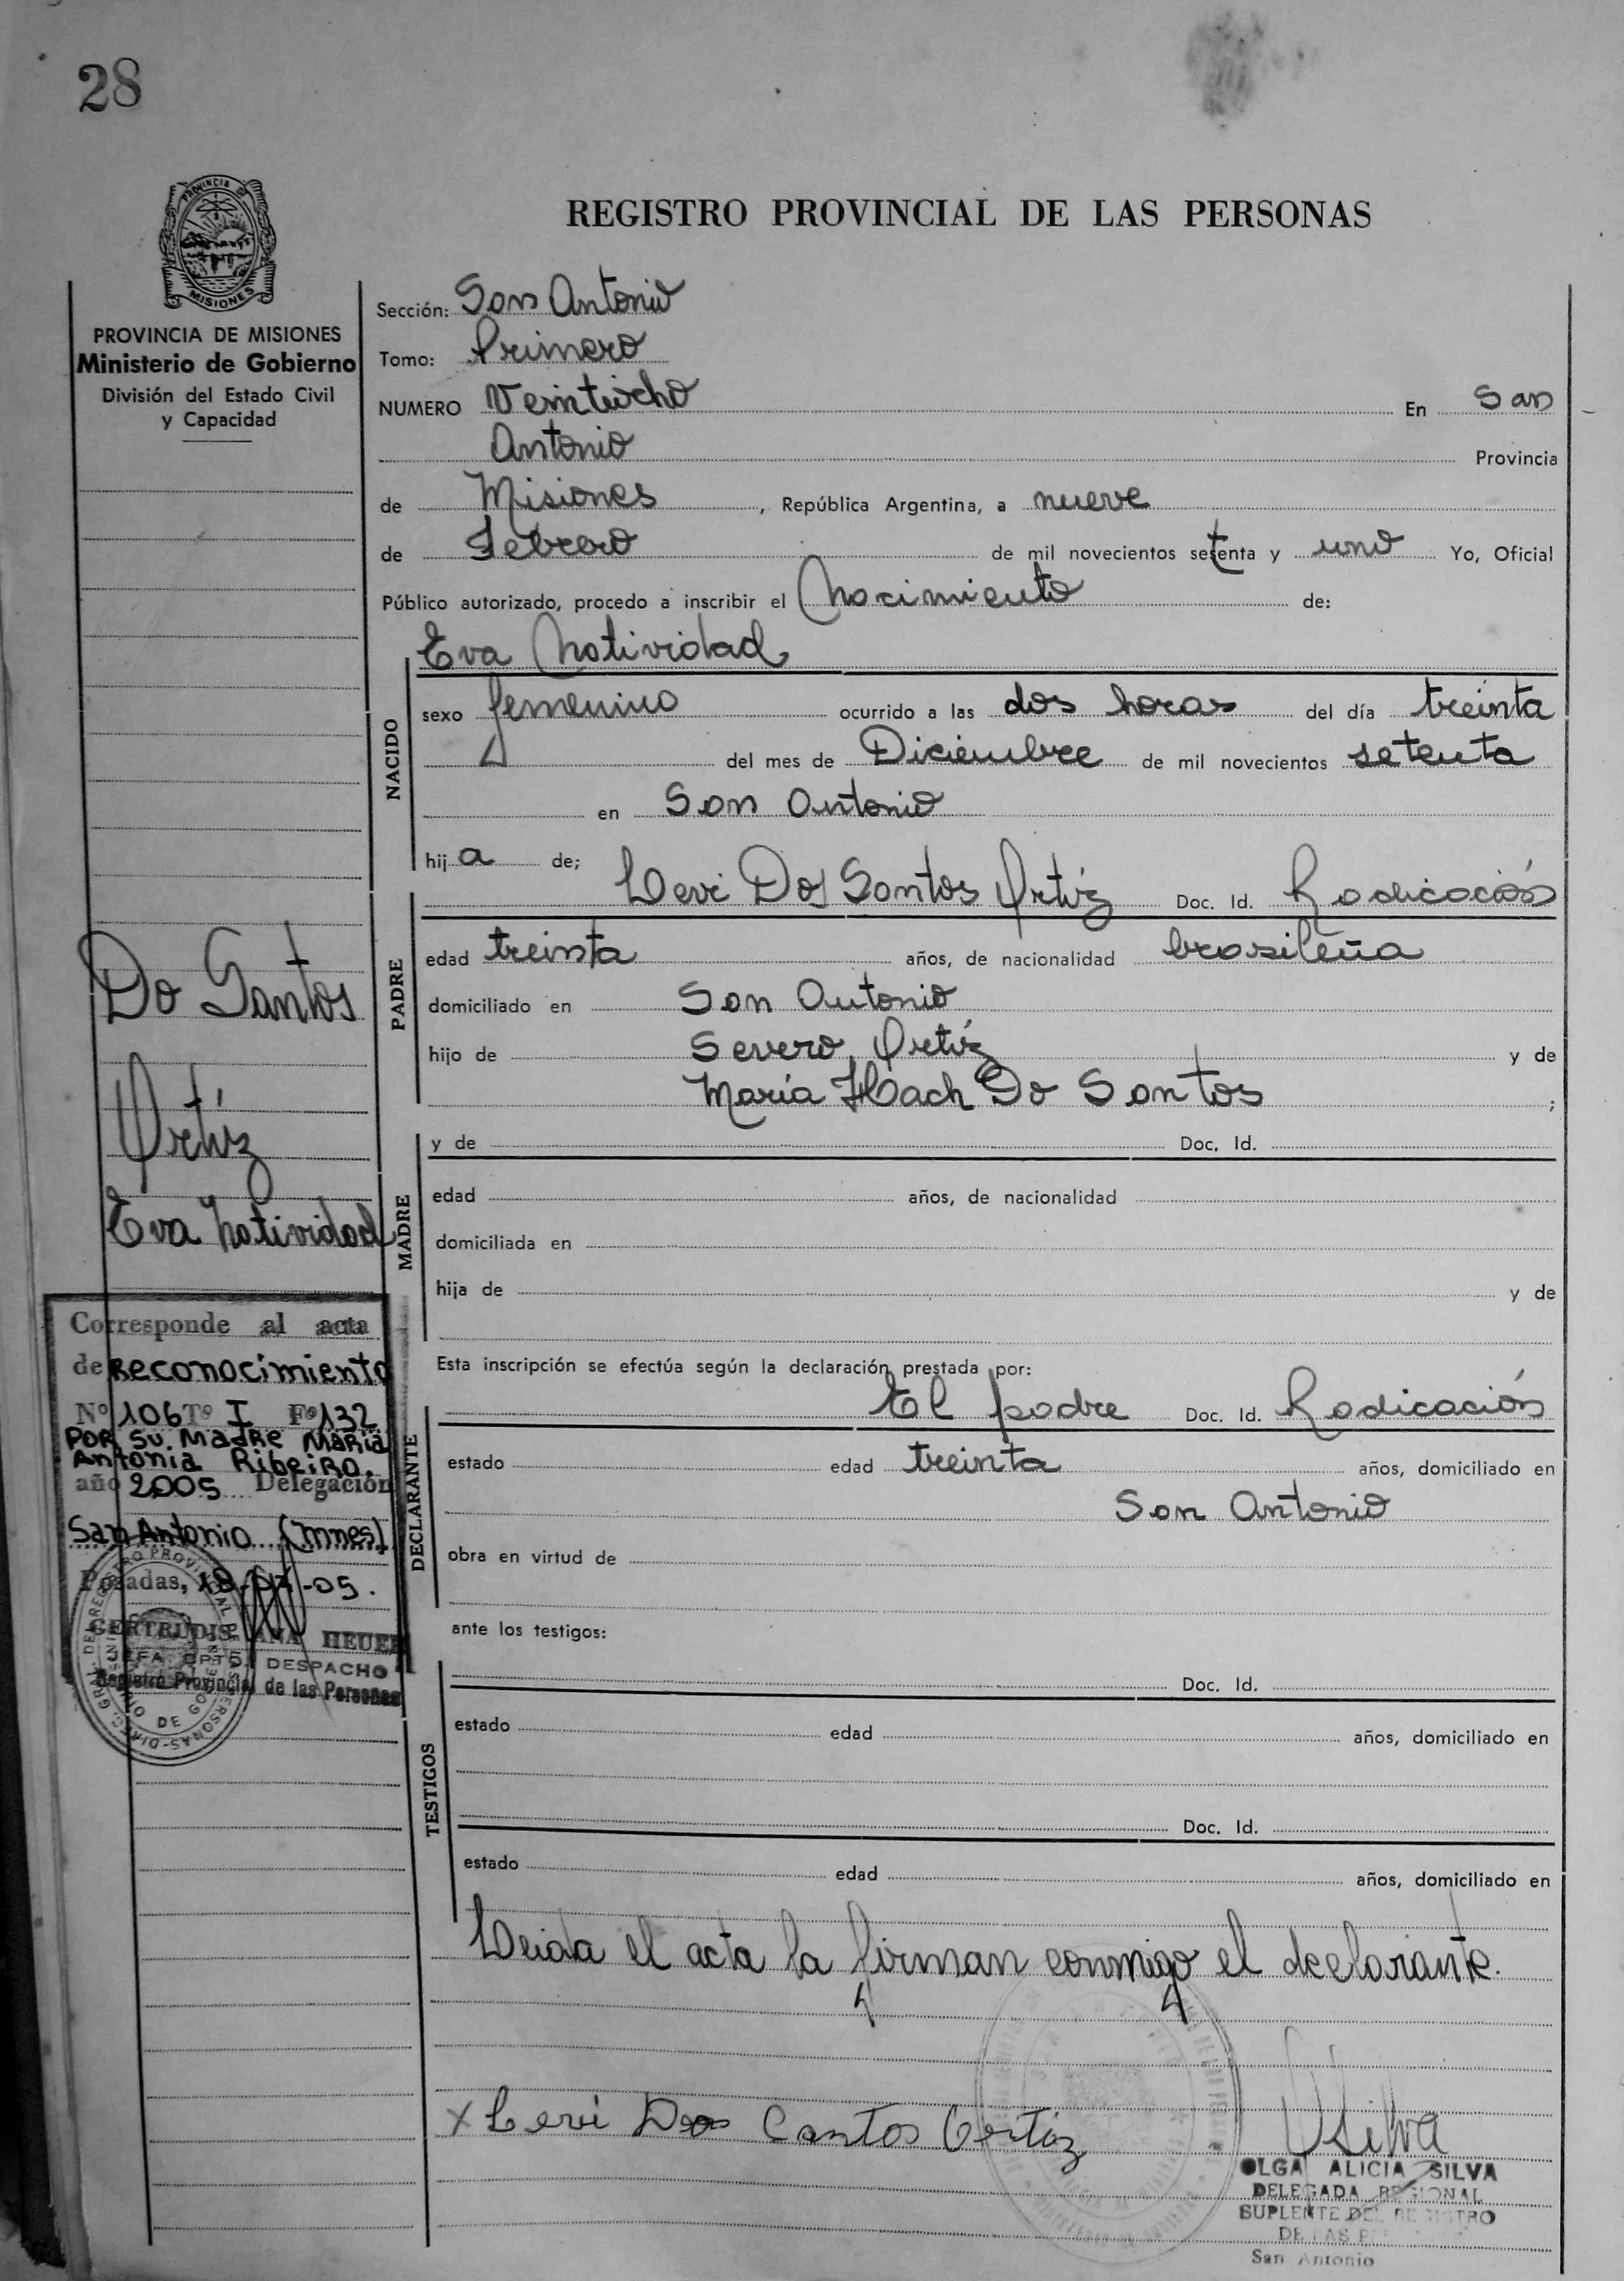 28
PROVINCIA DE
MISIONES
REGISTRO PROVINCIAL DE LAS PERSONAS
PROVINCIA DE MISIONES
Ministerio de Gobierno
División del Estado Civil
y Capacidad
Sección: San Antonio
Tomo: Primero
NUMERO Veintiocho En San
Antonio Provincia
de Misiones, República Argentina, a nueve
de Febrero de mil novecientos setenta y uno Yo, Oficial
Público autorizado, procedo a inscribir el Nacimiento de:
Eva Natividad
NACIDO
sexo femenino ocurrido a las dos horas del día treinta
del mes de Diciembre de mil novecientos setenta
en San Antonio
hija de;
Levi Dos Santos Ortiz Doc. Id. Radicación
PADRE
edad treinta años, de nacionalidad brasileña
domiciliado en San Antonio
hijo de Severo Ortíz y de
María Hach Do Santos ;
MADRE
y de Doc. Id.
edad años, de nacionalidad
domiciliada en
hija de y de
Esta inscripción se efectúa según la declaración prestada por:
El padre Doc. Id. Radicación
DECLARANTE
estado edad treinta años, domiciliado en
San Antonio
obra en virtud de
ante los testigos:
TESTIGOS
Doc. Id.
estado edad años, domiciliado en
Doc. Id.
estado edad años, domiciliado en
Leida el acta la firman conmigo el declarante.
x Levi Dos Cantos Ortiz
Silva
OLGA ALICIA SILVA
DELEGADA REGIONAL
SUPLENTE DEL REGISTRO
DE LAS
San Antonio
Do Santos
Ortíz
Eva Natividad
Corresponde al acta
de Reconocimiento
Nº 106 Tº I Fº 132
POR SU Madre María
Antonia Ribeiro.
año 2005 Delegación
San Antonio (Mnes)
Posadas, 18-07-05.
GERTRUDIS ANA HEUER
JEFA DPTO. DESPACHO
Registro Provincial de las Personas